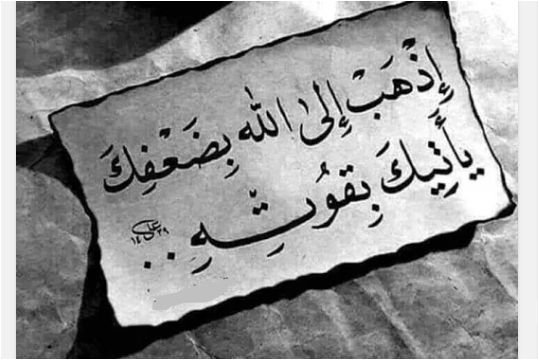 إِذْهَبْ إِلىٰ اللّٰه بِضَعْفِكَ
يأَتِيكَ بِقوُتِّهِ ..
١٤٣٩